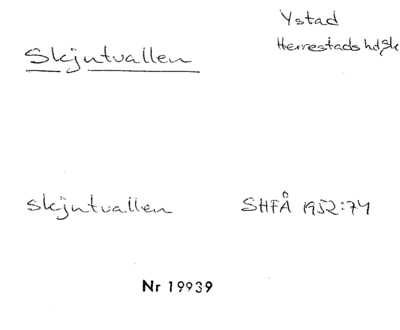 Ystad
Herrestads hd, Sk
Skjutvallen
Skjutvallen SHFÅ 1952:74
Nr 19939